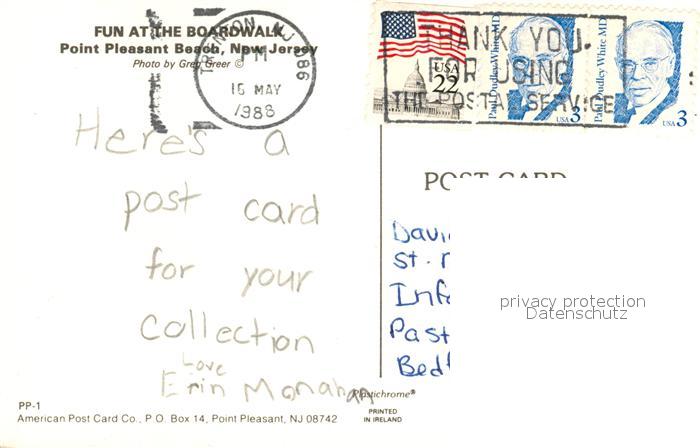 FUN AT THE BOARDWALK
Point Pleasant Beach, New Jersey
Photo by Greg Greer ©
TRENTON, NJ 086
PM
16 MAY
1988
THANK YOU
FOR USING
THE POSTAL SERVICE
USA
22
Paul Dudley White MD
USA 3
Paul Dudley White MD
USA 3
Here's a
post card
for your
collection
Love
Erin Monahan
POST CARD
St.
privacy protection
Datenschutz
Plastichrome®
PP-1
American Post Card Co., P.O. Box 14, Point Pleasant, NJ 08742
PRINTED
IN IRELAND